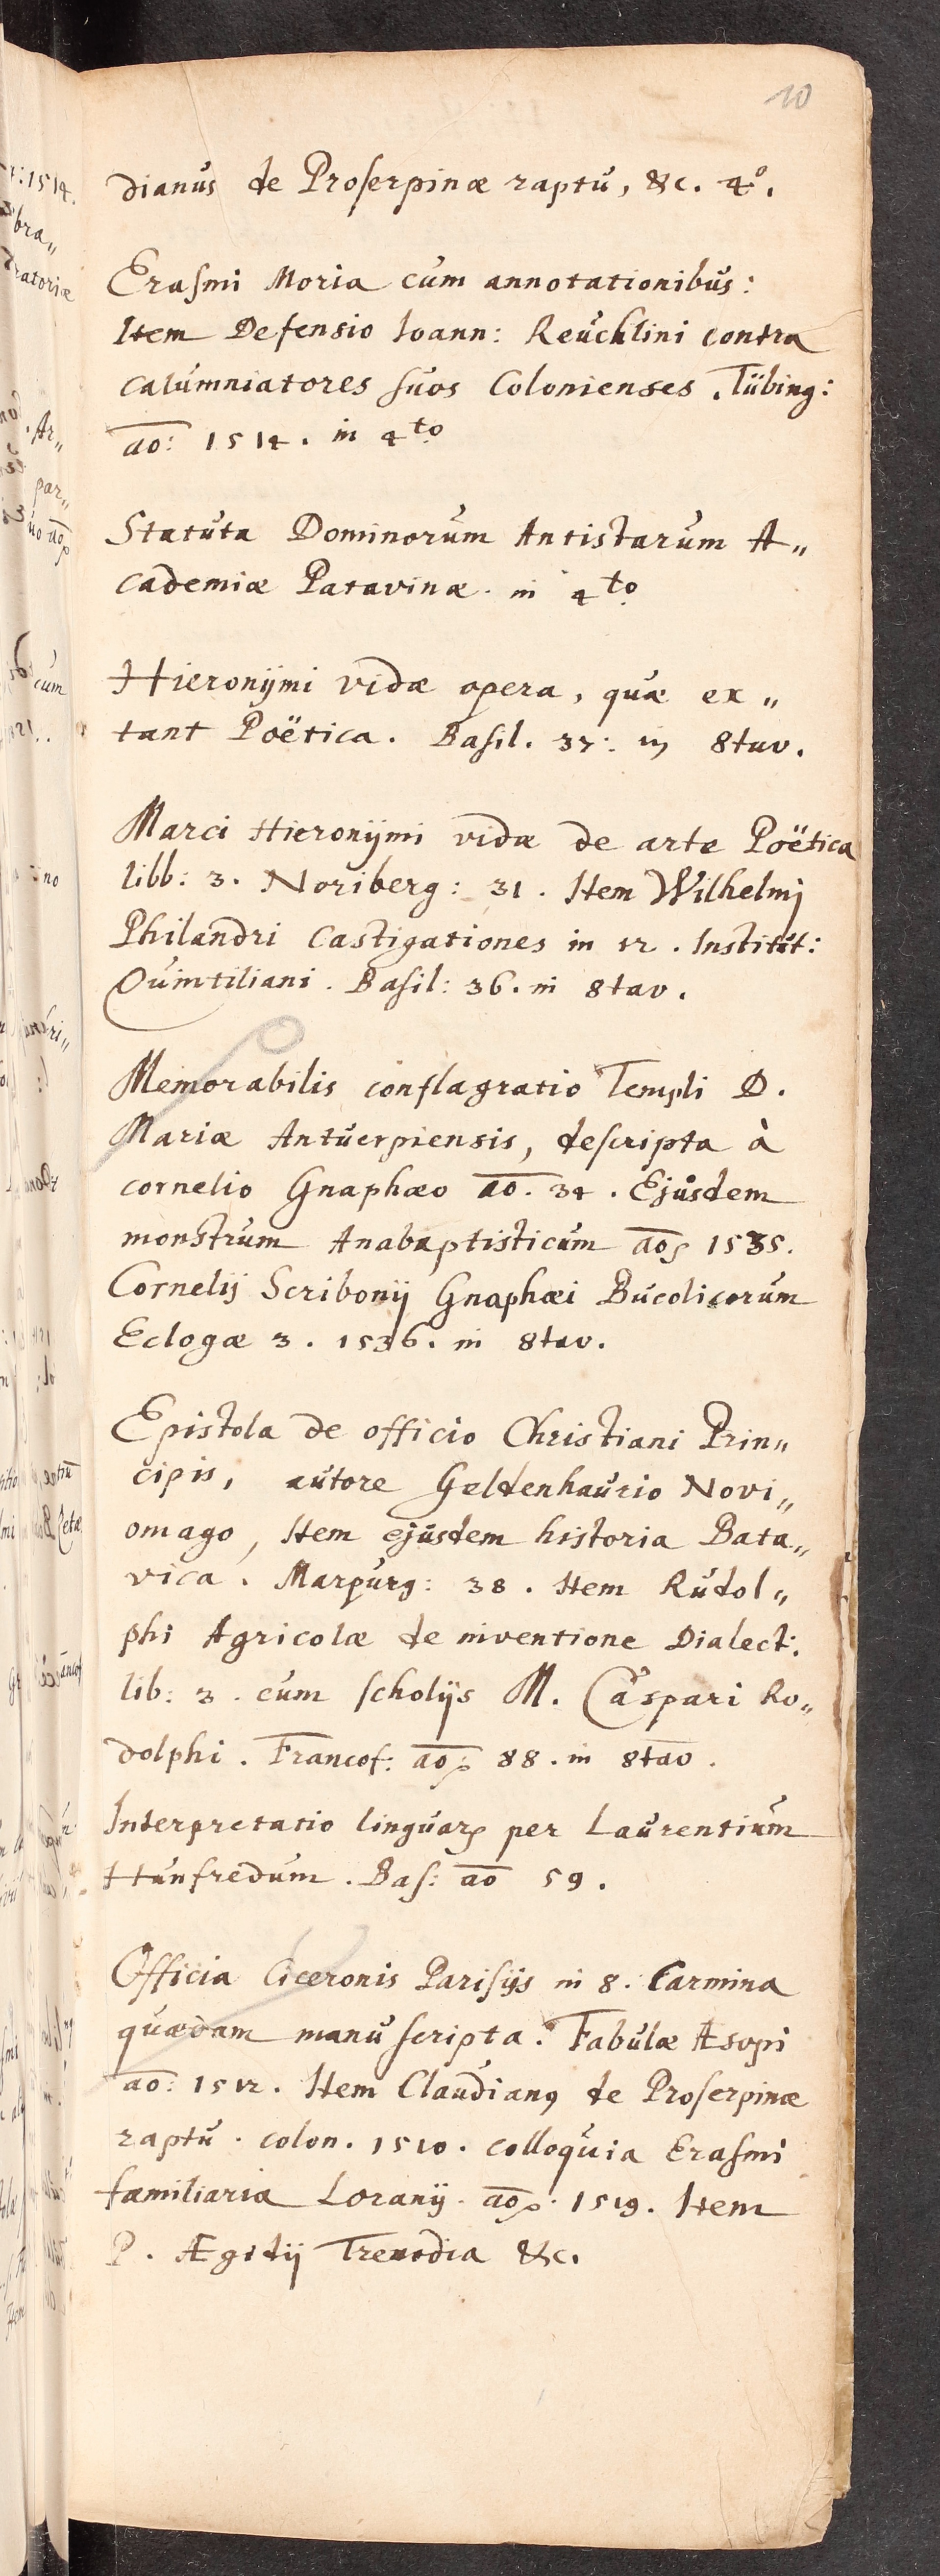 10
dianus de Proserpinæ raptu, &c. 4º.
Erasmi Moria cum annotationibus:
Item Defensio Ioann: Reuchlini contra
calumniatores suos Colonienses. Tübing:
ao: 1514. in 4to
Statuta Dominorum Antistarum A„
cademiæ Patavinæ. in 4to
Hieronÿmi vidæ opera, quæ ex„
tant Poëtica. Basil. 37. in 8tav.
Marci Hieronÿmi vidæ de arte Poëtica
libb: 3. Noriberg: 31. Item Wilhelmj
Philandri Castigationes in 12. Institut:
Quintiliani. Basil: 36. in 8tav.
Memorabilis conflagratio Templi D.
Mariæ Antuerpiensis, descripta à
cornelio Gnaphæo ao. 34. Ejusdem
monstrum Anabaptisticum ao 1535.
Cornelij Scribonij Gnaphæi Bucolicorum
Eclogæ 3. 1536. in 8tav.
Epistola de officio Christiani Prin„
cipis, autore Geldenhaurio Novi„
omago, Item ejusdem historia Bata„
vica. Marpurg: 38. Item Rudol„
phi Agricolæ de inventione Dialect:
lib: 3. cum scholijs M. Caspari Ro„
dolphi. Francof: ao 88. in 8tav.
Interpretatio linguarꝫ per Laurentium
Hunfredum. Bas: ao 59.
Officia Ciceronis Parisijs in 8. Carmina
quædam manu scripta. Fabulæ Æsopi
ao: 1512. Item Claudianꝰ de Proserpinæ
raptu. colon. 1510. colloquia Erasmi
familiaria Loranij. ao 1519. Item
P. Ægidij Trenodia &c.